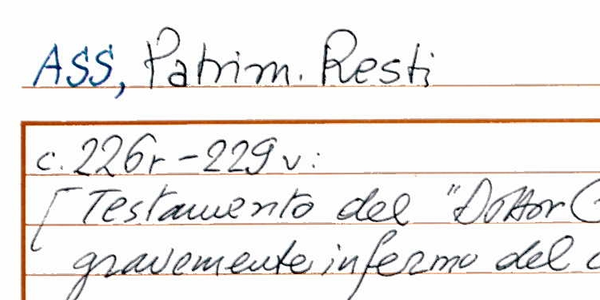 ASS, Patrim. Resti
c. 226r - 229v:
[Testamento del "Dottor
gravemente infermo del